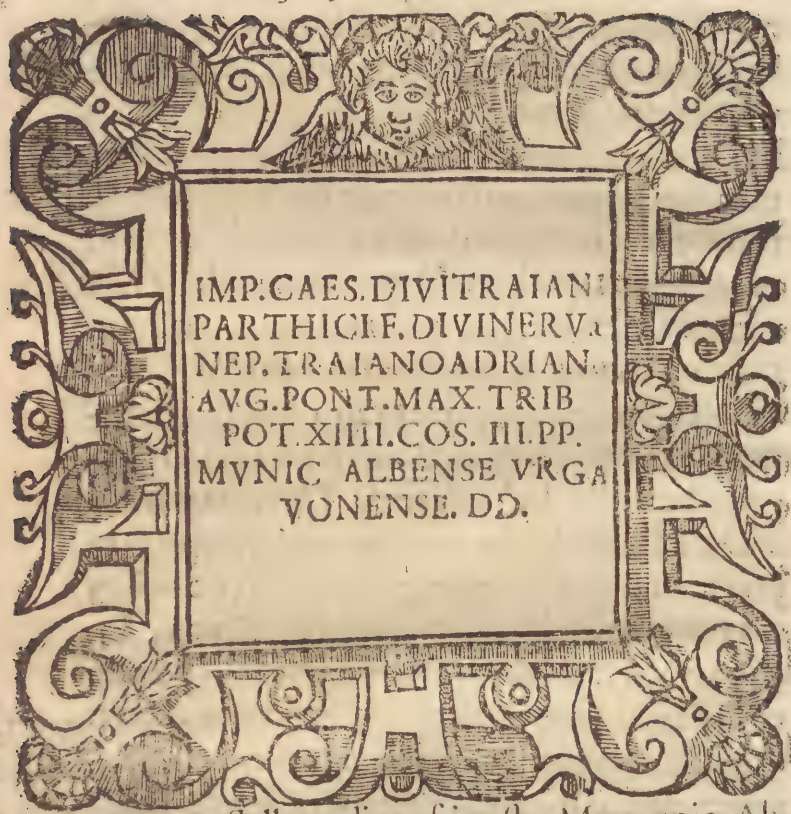 IMP.CAES.DIVITRAIANI
PARTHICI.F.DIVINERV.
NEP.TRAIANOADRIAN.
AVG.PONT.MAX.TRIB
POT.XIIII.COS. III.PP.
MVNIC ALBENSE VRGA
VONENSE. DD.